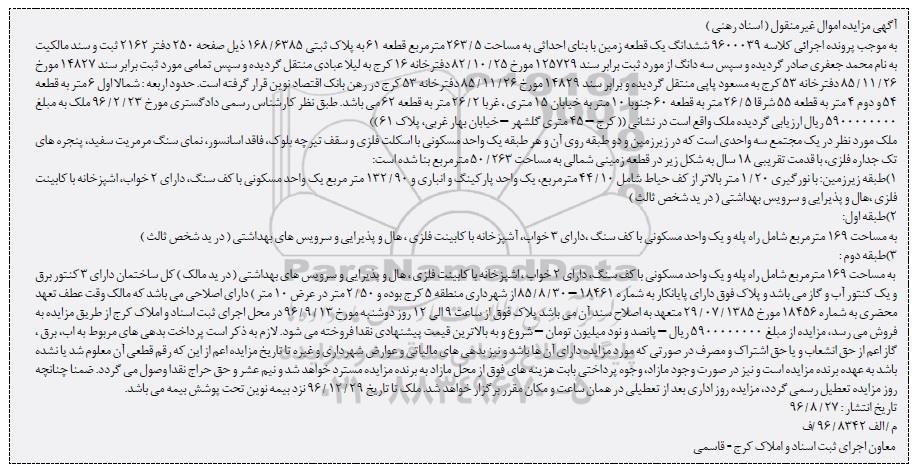 آگهی مزایده اموال غیر منقول ( اسناد رهنی )
به موجب پرونده اجرائی کلاسه ۹۶۰۰۰۳۹ ششدانگ یک قطعه زمین با بنای احداثی به مساحت ۲۶۳/۵ مترمربع قطعه ۶۱ به پلاک ثبتی ۱۶۸/۶۳۸۵ ذیل صفحه ۲۵۰ دفتر ۲۱۶۲ ثبت و سند مالکیت
به نام محمد جعفری صادر گردیده و سپس سه دانگ از مورد ثبت برابر سند ۱۲۵۷۲۹ مورخ ۸۲/۱۰/۲۵ دفترخانه ۱۶ کرج به لیلا عبادی منتقل گردیده و سپس تمامی مورد ثبت برابر سند ۱۴۸۲۷ مورخ
۸۵/۱۱/۲۶ دفتر خانه ۵۳ کرج به مسعود پاپی منتقل گردیده و برابر سند ۱۴۸۲۹ مورخ ۸۵/۱۱/۲۶ دفترخانه ۵۳ کرج در رهن بانک اقتصاد نوین قرار گرفته است. حدود اربعه : شمالا اول ۶ متر به قطعه
۵۴ و دوم ۴ متر به قطعه ۵۵ شرقا ۲۶/۵ متر به قطعه ۶۰ جنوبا ۱۰ متر به خیابان ۱۵ متری ، غربا ۲۶/۲ متر به قطعه ۶۲ می باشد. طبق نظر کارشناس رسمی دادگستری مورخ ۹۶/۲/۲۳ ملک به مبلغ
۵۹۰۰۰۰۰۰۰۰ ریال ارزیابی گردیده ملک واقع است در نشانی (( کرج – ۴۵ متری گلشهر – خیابان بهار غربی، پلاک ۶۱))
ملک مورد نظر در یک مجتمع سه واحدی است که در زیرزمین و دو طبقه روی آن و هر طبقه یک واحد مسکونی با اسکلت فلزی و سقف تیرچه بلوک، فاقد اسانسور، نمای سنگ مرمریت سفید، پنجره های
تک جداره فلزی، با قدمت تقریبی ۱۸ سال به شکل زیر در قطعه زمینی شمالی به مساحت ۲۶۳/۵۰ مترمربع بنا شده است:
۱)طبقه زیرزمین: با نورگیری ۱/۲۰ متر بالاتر از کف حیاط شامل ۴۴/۱۰ مترمربع، یک واحد پارکینگ و انباری و ۱۳۲/۹۰ متر مربع یک واحد مسکونی با کف سنگ، دارای ۲ خواب، اشپزخانه با کابینت
فلزی ،هال و پذیرایی و سرویس بهداشتی ( در ید شخص ثالث )
۲)طبقه اول:
به مساحت ۱۶۹ مترمربع شامل راه پله و یک واحد مسکونی با کف سنگ ،دارای ۳ خواب، آشپزخانه با کابینت فلزی ، هال و پذیرایی و سرویس های بهداشتی ( در ید شخص ثالث )
۳)طبقه دوم :
به مساحت ۱۶۹ مترمربع شامل راه پله و یک واحد مسکونی با کف سنگ، دارای ۲ خواب، اشپزخانه با کابینت فلزی ، هال و پذیرایی و سرویس های بهداشتی ( در ید مالک ) کل ساختمان دارای ۳ کنتور برق
و یک کنتور آب و گاز می باشد و پلاک فوق دارای پایانکار به شماره ۱۸۴۶۱ – ۸۵/۸/۳۰ از شهرداری منطقه ۵ کرج بوده و ۲/۵۰ متر در عرض ۱۰ متر ) دارای اصلاحی می باشد که مالک وقت عطف تعهد
محضری به شماره ۱۸۴۵۶ مورخ ۱۳۸۵/۰۷/۲۹ متعهد به اصلاح سند آن می باشد پلاک فوق از ساعت ۹ الی ۱۲ روز دوشنبه مورخ ۹۶/۹/۱۳ در محل اجرای ثبت اسناد و املاک کرج از طریق مزایده به
فروش می رسد، مزایده از مبلغ ۵۹۰۰۰۰۰۰۰۰ ریال – پانصد و نود میلیون تومان – شروع و به بالاترین قیمت پیشنهادی نقدا فروخته می شود. لازم به ذکر است پرداخت بدهی های مربوط به اب، برق ،
گاز اعم از حق انشعاب و یا حق اشتراک و مصرف در صورتی که مورد مزایده دارای آن ها باشد و نیز بدهی های مالیاتی و عوارض شهرداری و غیره تا تاریخ مزایده اعم از این که رقم قطعی آن معلوم شد یا نشده
باشد به عهده برنده مزایده است و نیز در صورت وجود مازاد، وجوه پرداختی بابت هزینه های فوق از محل مازاد به برنده مزایده مسترد خواهد شد و نیم عشر و حق حراج نقدا وصول می گردد. ضمنا چنانچه
روز مزایده تعطیل رسمی گردد، مزایده روز اداری بعد از تعطیلی در همان ساعت و مکان مقرر برگزار خواهد شد. ملک تا تاریخ ۹۶/۱۲/۲۹ نزد بیمه نوین تحت پوشش بیمه می باشد.
تاریخ انتشار : ۹۶/۸/۲۷
م /الف ۹۶/۸۳۴۲/ف
معاون اجرای ثبت اسناد و املاک کرج - قاسمی
ParsNamadData
پایگاه اطلاع رسانی مناقصه و مزایده
۰۲۱-۸۸۳۴۹۶۷۰-۵